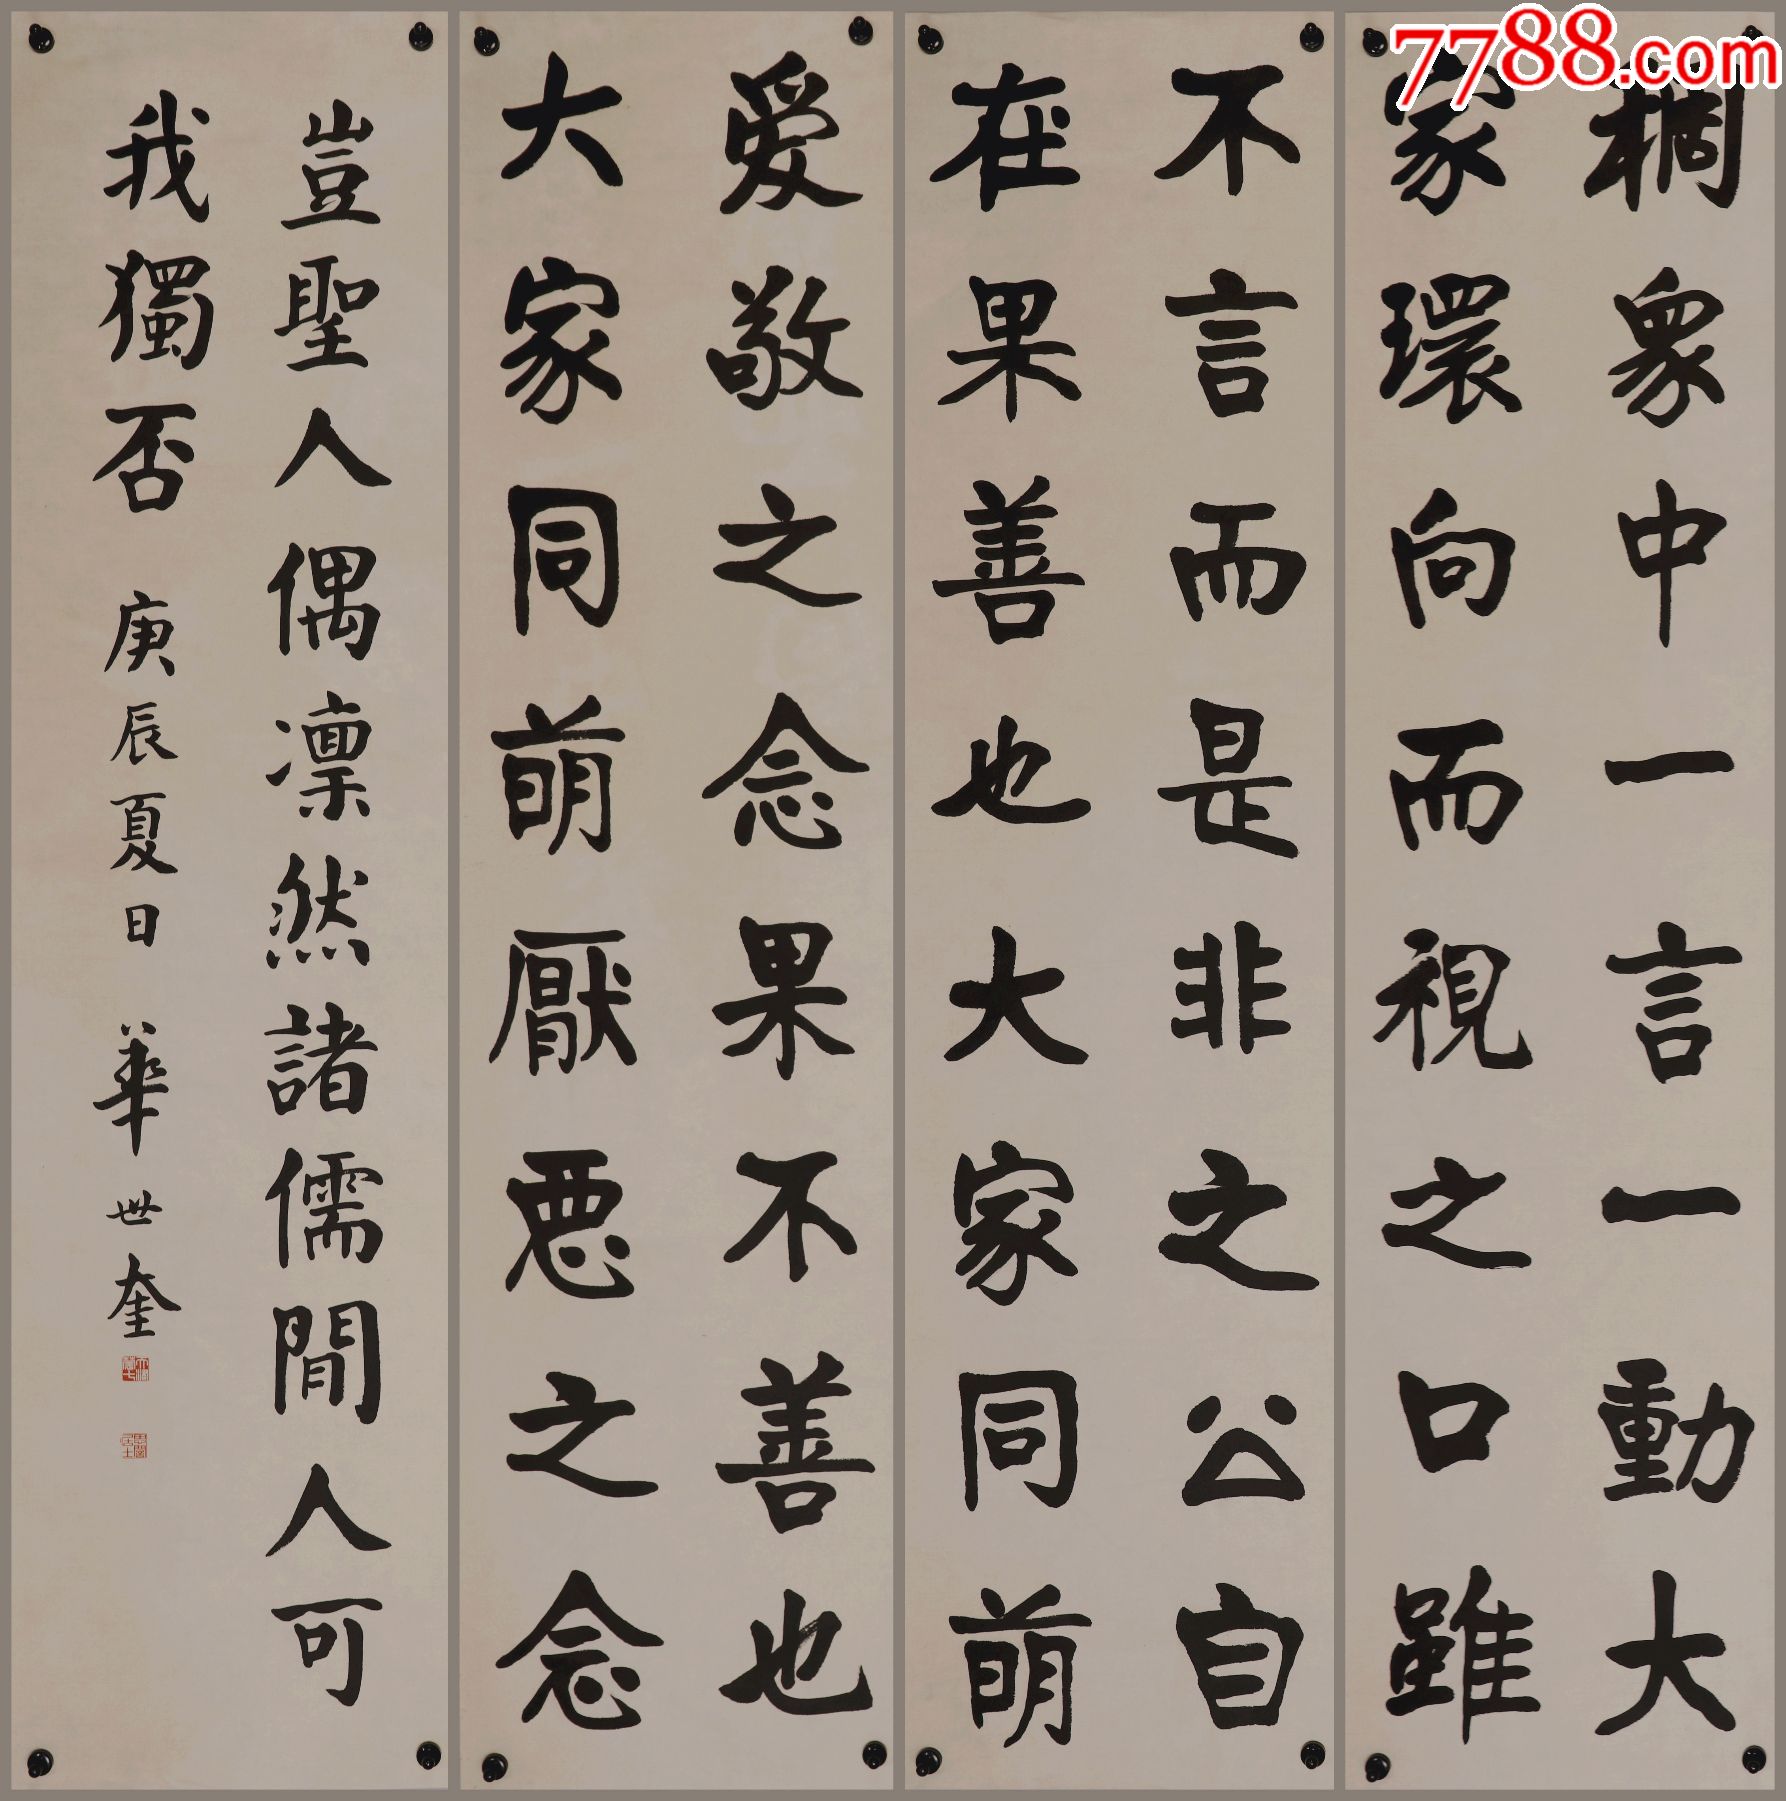 7788.com
稠衆中一言一動大
家環向而視之口雖
不言而是非之公自
在果善也大家同萌
爱敬之念果不善也
大家同萌厭惡之念
豈聖人偶凛然諸儒間人可
我獨否 庚辰夏日 華世奎